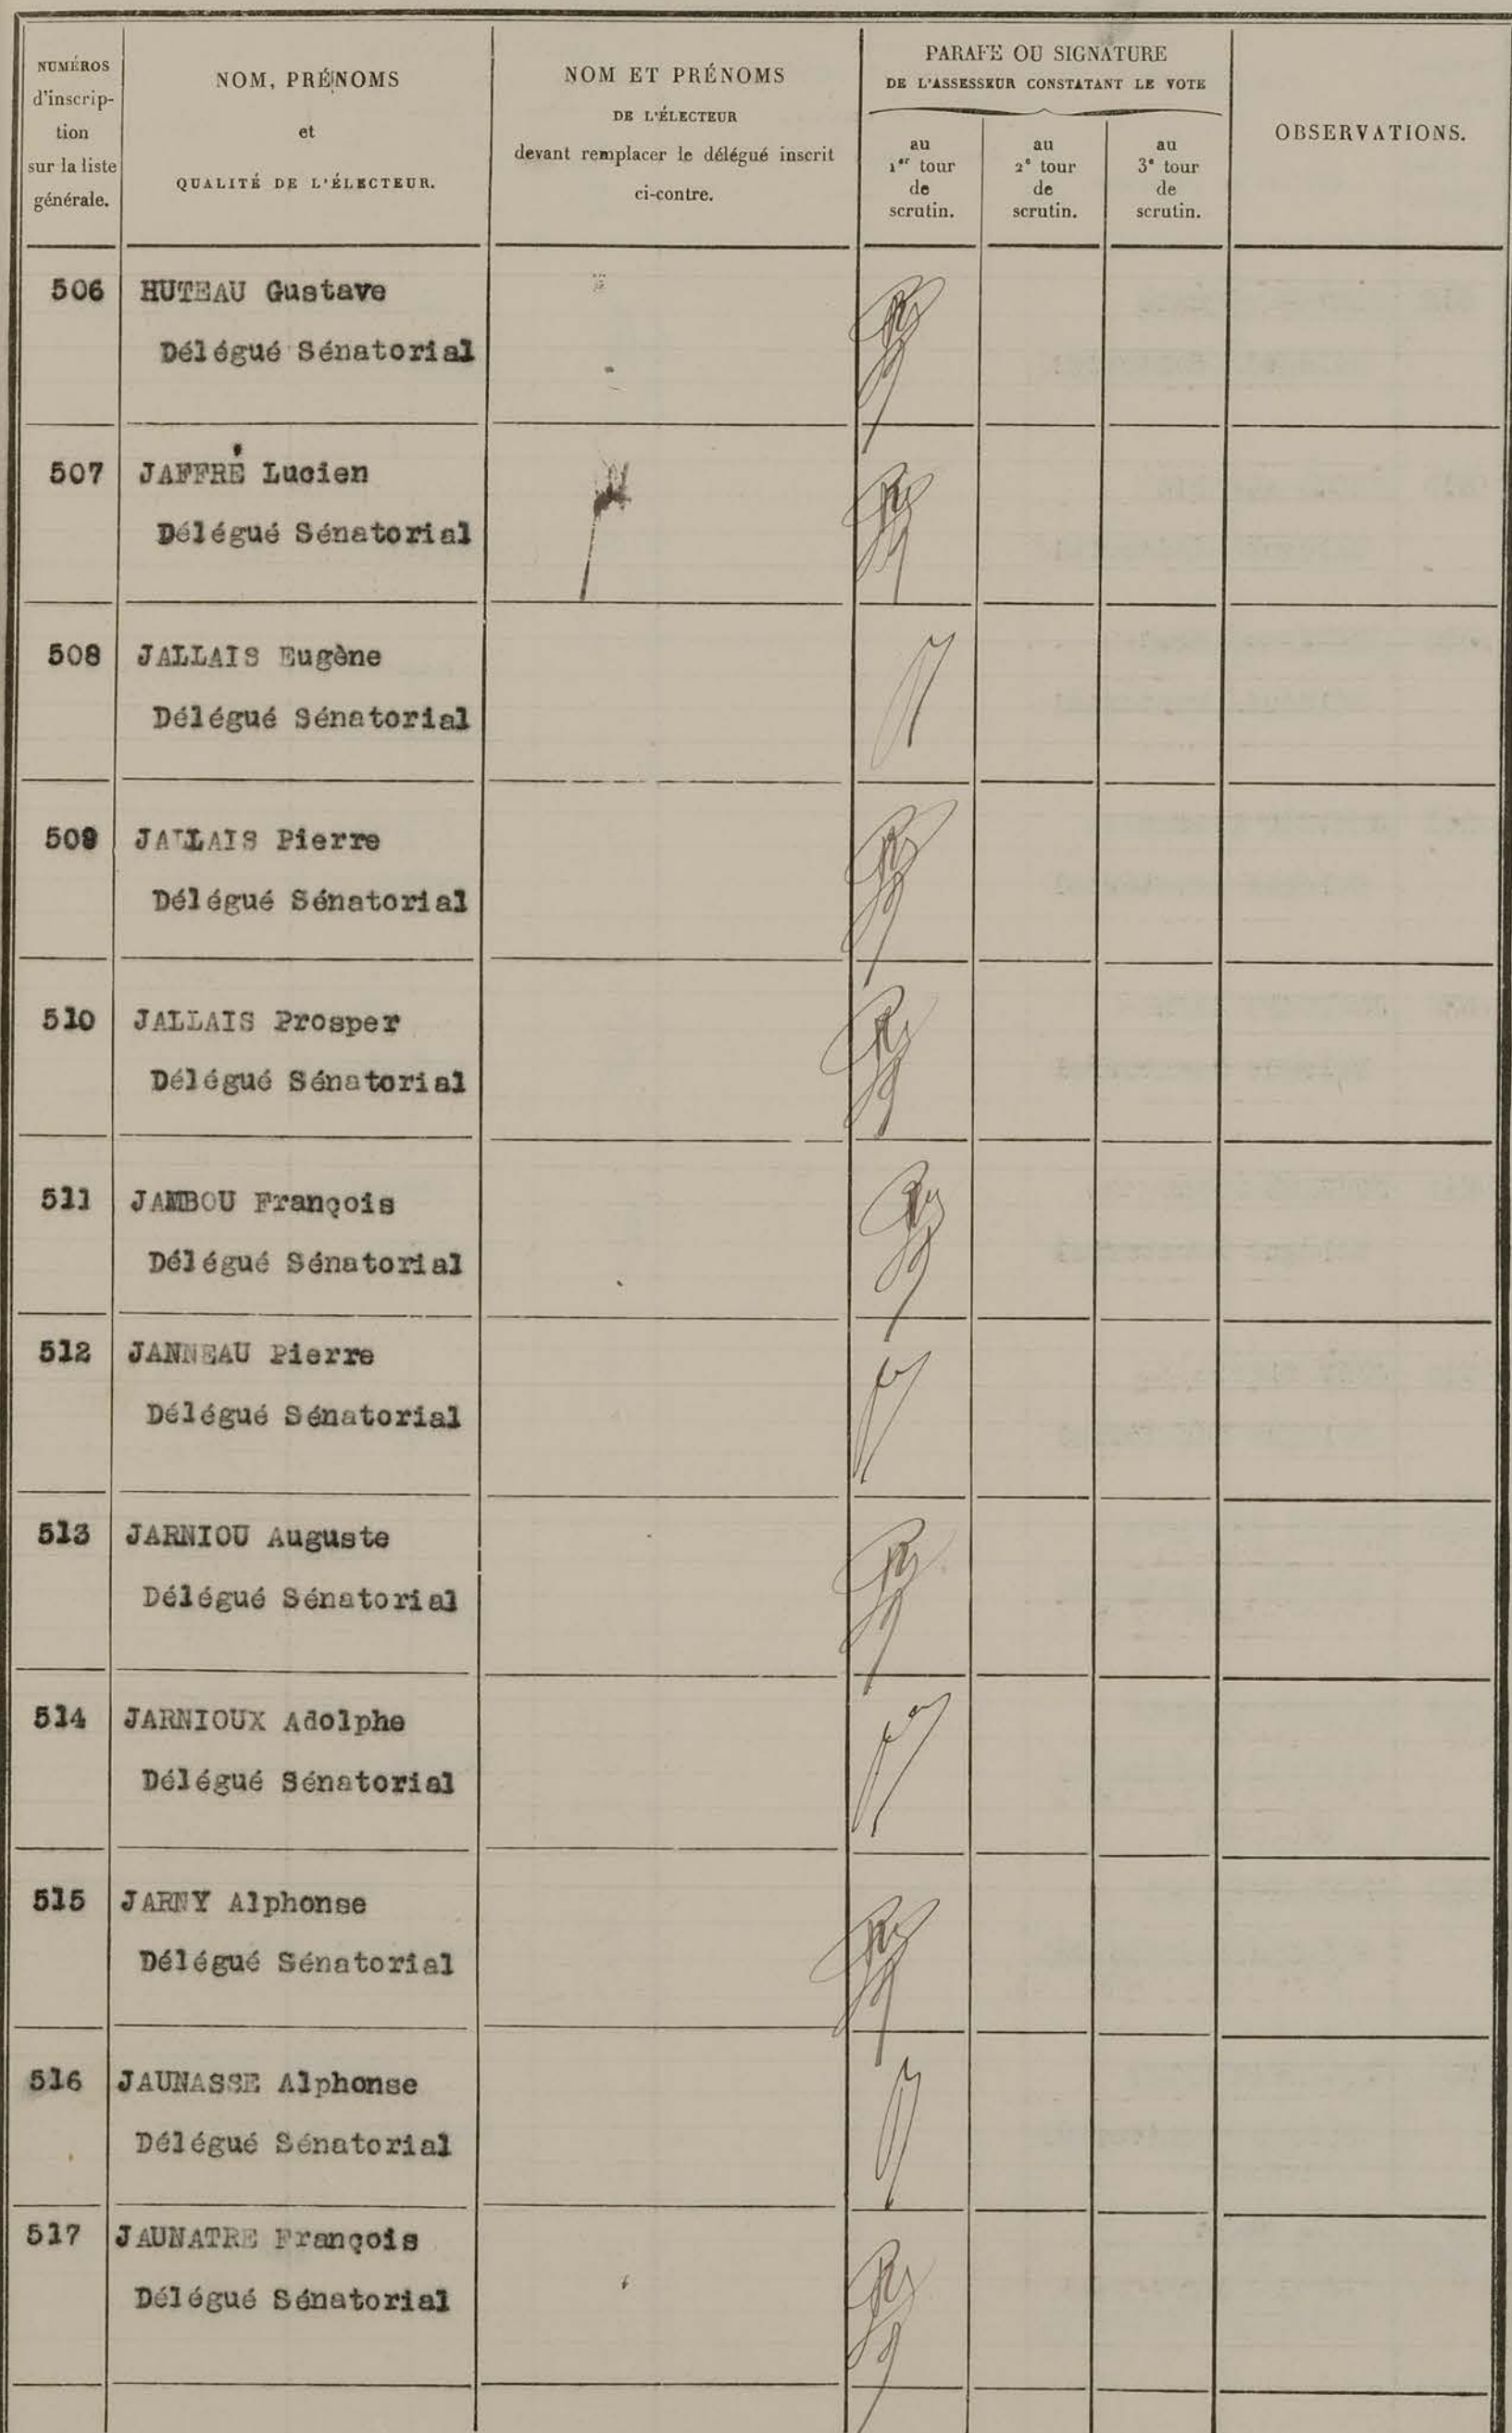 NUMÉROS
d'inscrip-
tion
sur la liste
générale.
NOM, PRÉNOMS
et
QUALITÉ DE L'ÉLECTEUR.
NOM ET PRÉNOMS
DE L'ÉLECTEUR
devant remplacer le délégué inscrit
ci-contre.
PARAFE OU SIGNATURE
DE L'ASSESSEUR CONSTATANT LE VOTE
au
1er tour
de
scrutin.
au
2e tour
de
scrutin.
au
3e tour
de
scrutin.
OBSERVATIONS.
506 HUTEAU Gustave
Délégué Sénatorial
507 JAFFRÉ Lucien
Délégué Sénatorial
508 JALLAIS Eugène
Délégué Sénatorial
509 JALLAIS Pierre
Délégué Sénatorial
510 JALLAIS Prosper
Délégué Sénatorial
511 JAMBOU François
Délégué Sénatorial
512 JANNEAU Pierre
Délégué Sénatorial
513 JARNIOU Auguste
Délégué Sénatorial
514 JARNIOUX Adolphe
Délégué Sénatorial
515 JARNY Alphonse
Délégué Sénatorial
516 JAUNASSE Alphonse
Délégué Sénatorial
517 JAUNATRE François
Délégué Sénatorial